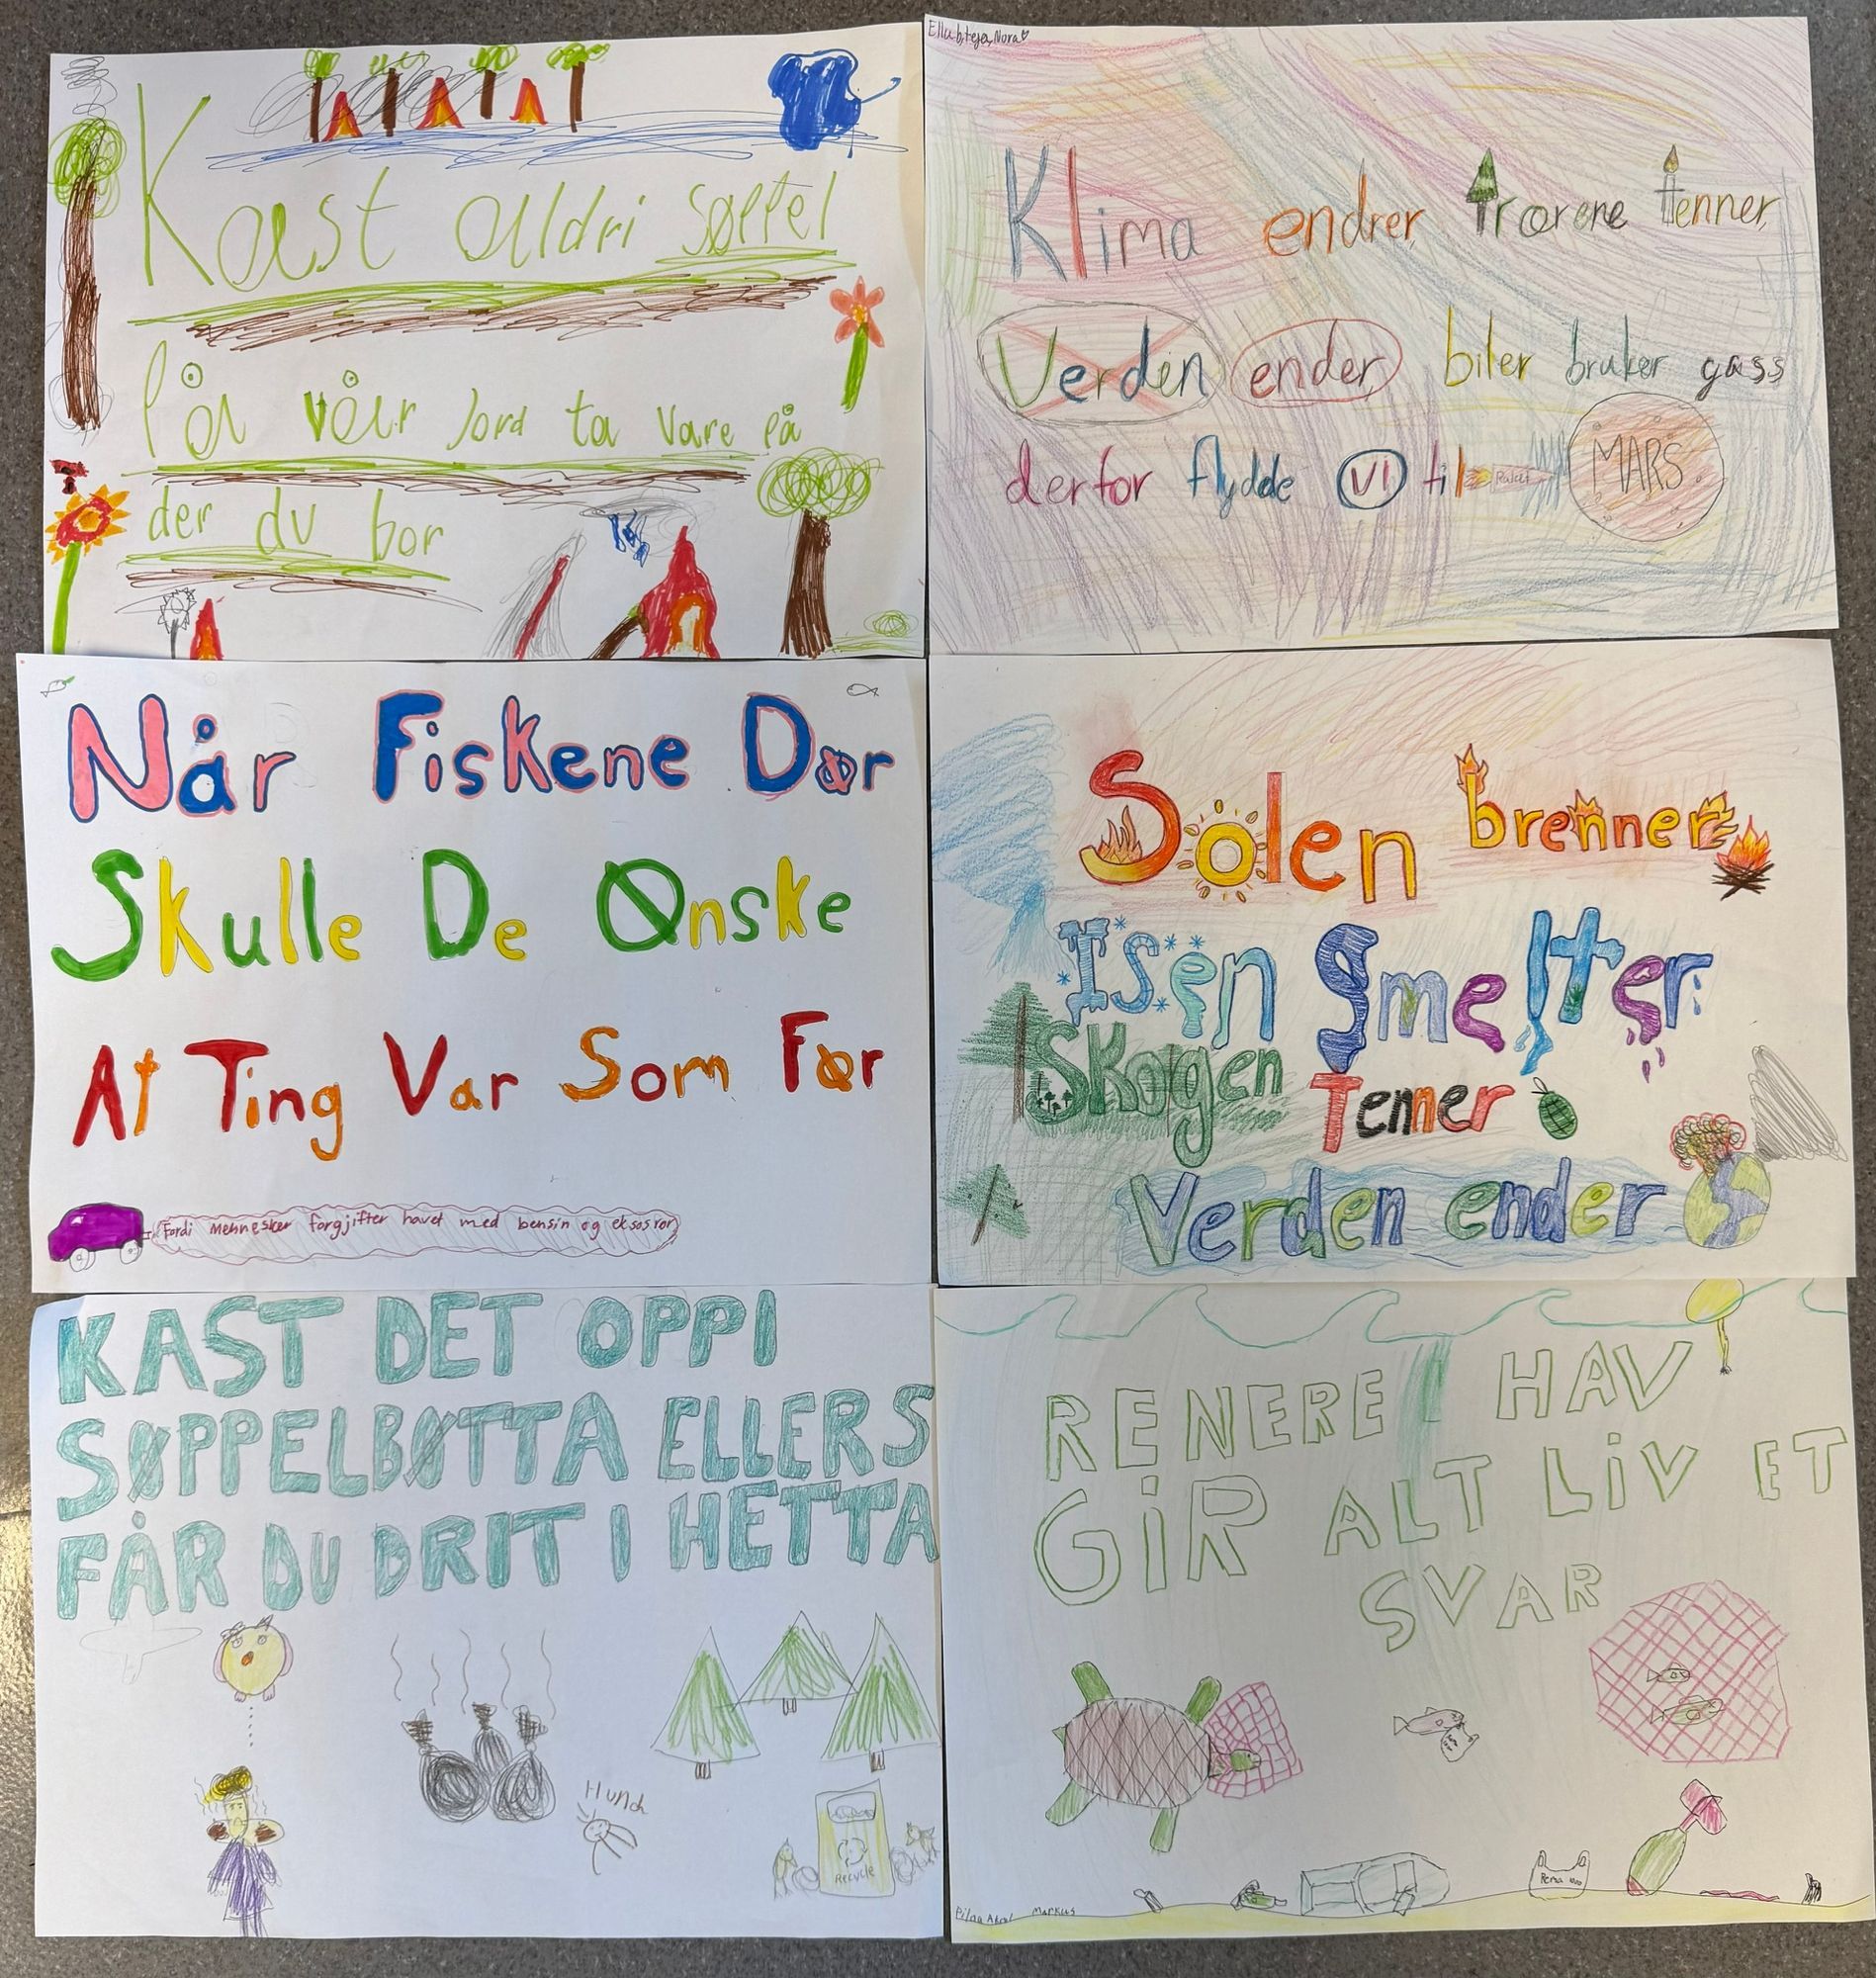 Kast aldri søppel
på vår Jord ta vare på
der du bor
Klima endrer, trærene tenner,
Verden ender, biler bruker gass
derfor flydde vi til
Rakett
MARS
Når Fiskene Dør
Skulle De Ønske
At Ting Var Som Før
Fordi mennesker forgjifter havet med bensin og eksosrør
Solen brenner
Isen smelter
Skogen Tenner
Verden ender
KAST DET OPPI
SØPPELBØTTA ELLERS
FÅR DU DRIT I HETTA
Hund
RECYCLE
RENERE HAV
GIR ALT LIV ET
SVAR
Rema 1000
Markus